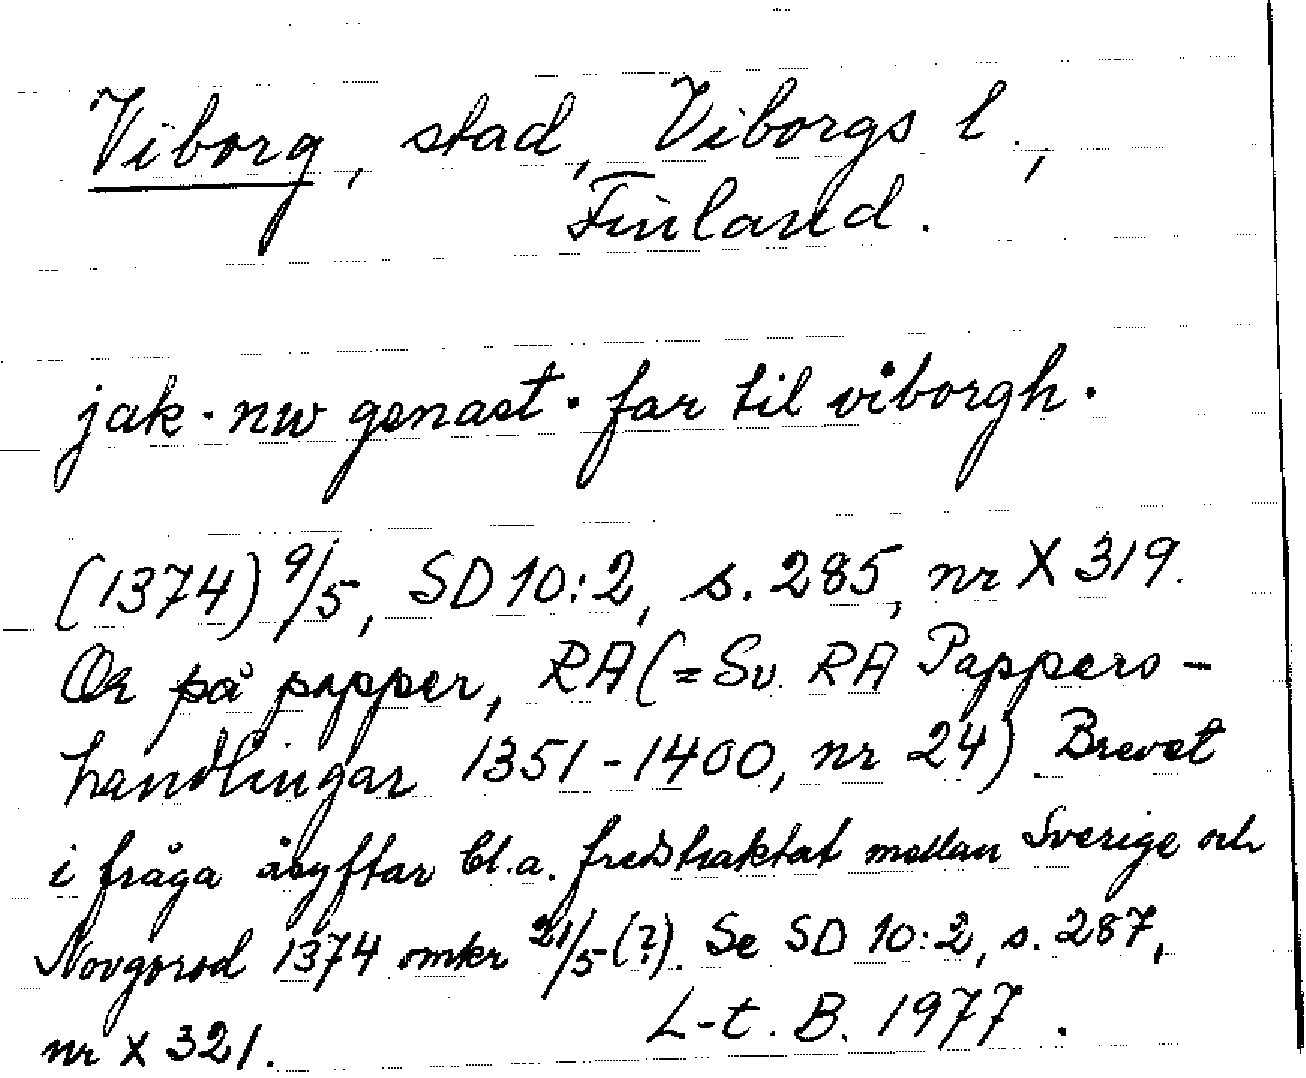 Viborg, stad, Viborgs l.,
Finland.
jak · nw genast · far til viborgh ·
(1374) 9/5, SD 10:2, s. 285, nr X 319.
Or på papper, RA (= Sv. RA Pappers-
handlingar 1351-1400, nr 24). Brevet
i fråga åsyftar bl.a. fredstraktat mellan Sverige och
Novgorod 1374 omkr 21/5 (?). Se SD 10:2, s. 287,
nr X 321.
L-t. B. 1977.